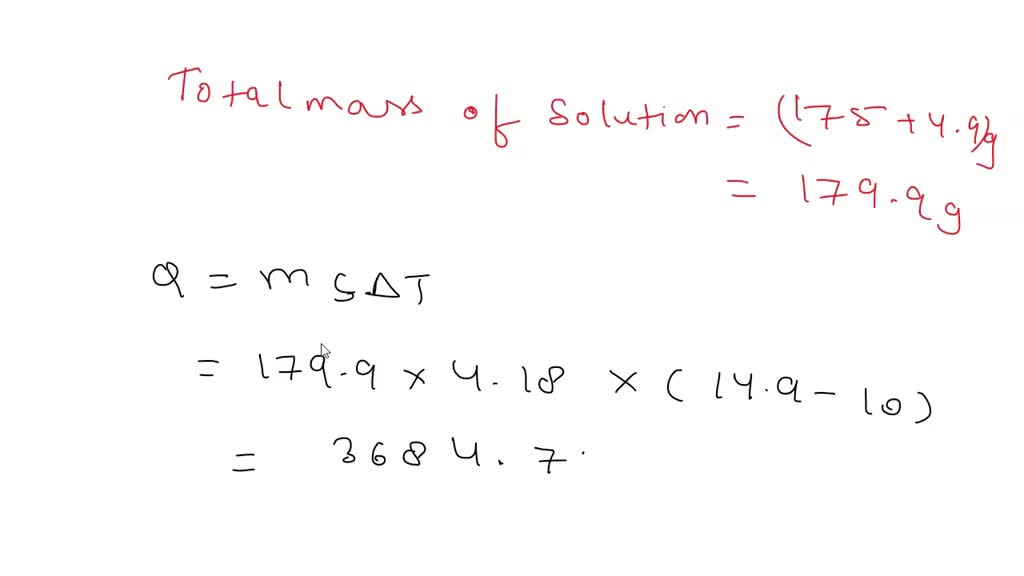 Total mass of Solution = (175 + 4.9)g
= 179.9g
Q = m S Δ T
= 179.9 × 4.18 × (14.9 - 10)
= 3684.7.